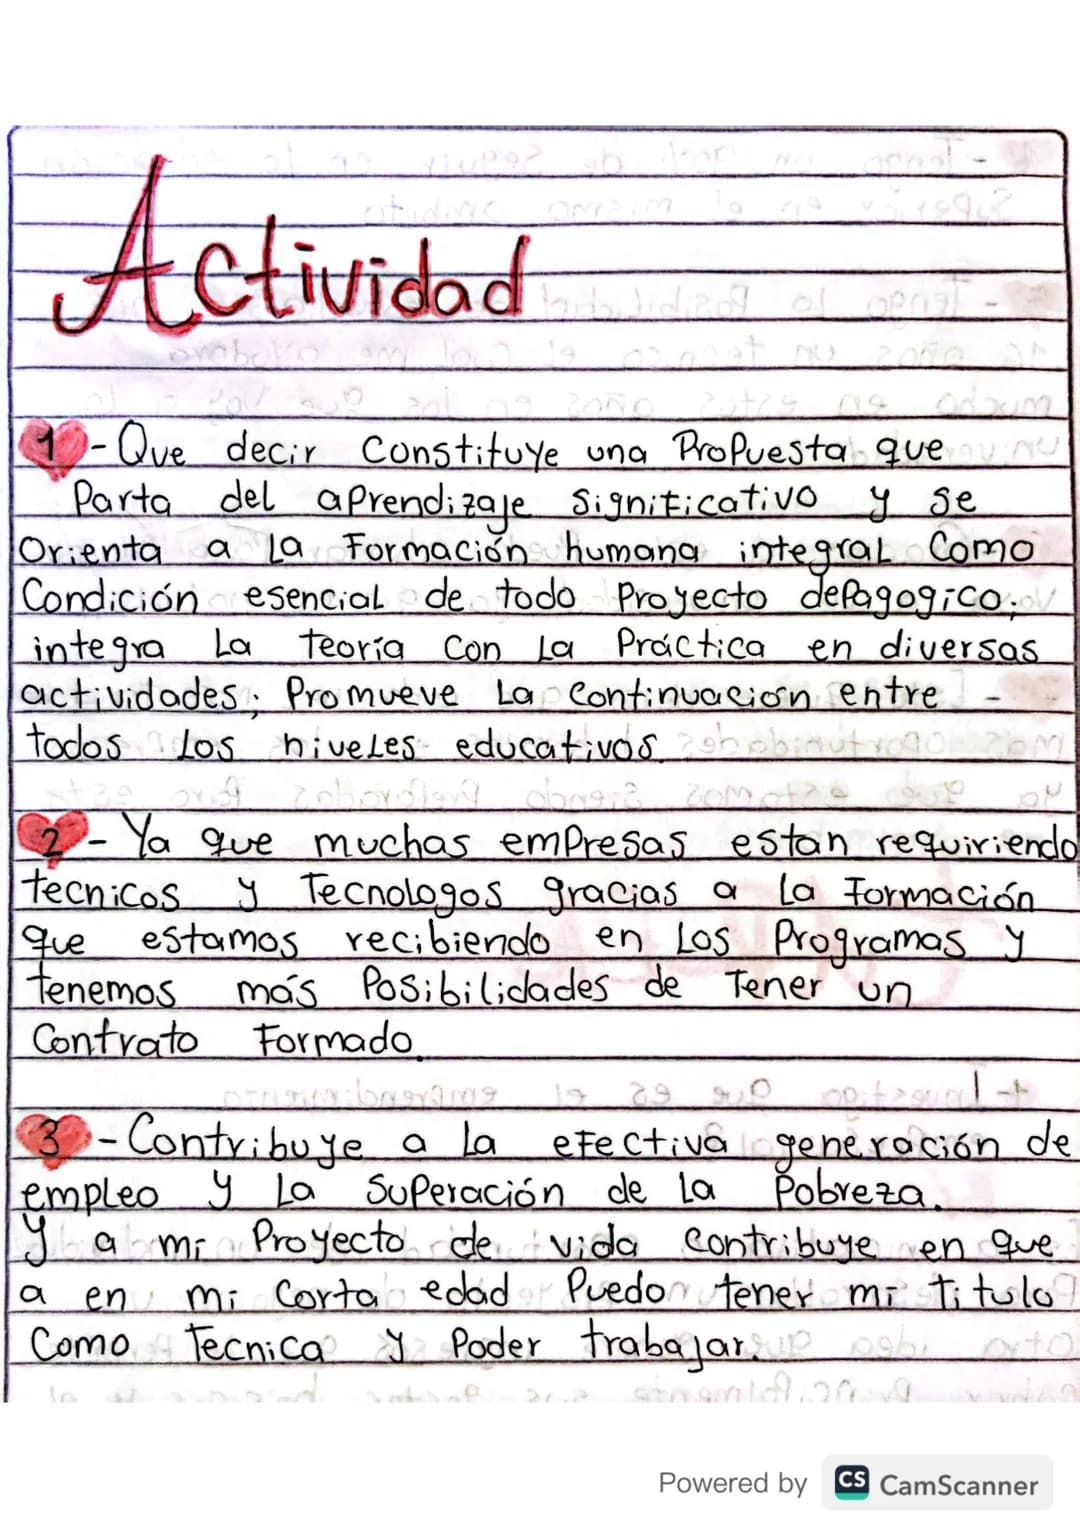 Actividad
1 - Que decir constituye una Propuesta que
Parta del aprendizaje significativo y se
Orienta a La Formación humana integral Como
Condición esencial de todo Proyecto depagogico;
integra La Teoría Con La Práctica en diversas
actividades; Promueve La Continuación entre
todos Los niveles educativos.
2 - Ya que muchas empresas estan requiriendo
tecnicos y Tecnologos gracias a la Formación
que estamos recibiendo en Los Programas y
tenemos más Posibilidades de Tener un
Contrato Formado.
3 - Contribuye a la efectiva generación de
empleo y La Superación de La Pobreza.
y a mi Proyecto de vida Contribuye en que
a en mi Corta edad Puedo tener mi titulo
Como Tecnica y Poder trabajar.
Powered by CS CamScanner